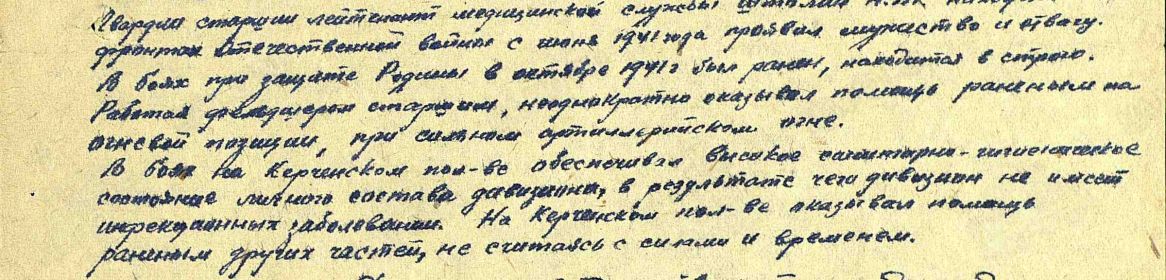 Гвардии старший лейтенант медицинской службы
фронтах Отечественной войны с июня 1941 года проявил мужество и отвагу.
В боях при защите Родины в октябре 1941 г был ранен, находится в строю.
Работая фельдшером старшим, неоднократно оказывал помощь раненым на
огневой позиции, при сильном артиллерийском огне.
В боях на Керченском пол-ве обеспечивал высокое санитарно-гигиеническое
состояние личного состава дивизиона, в результате чего дивизион не имеет
инфекционных заболеваний. На Керченском пол-ве оказывал помощь
раненым других частей, не считаясь с силами и временем.